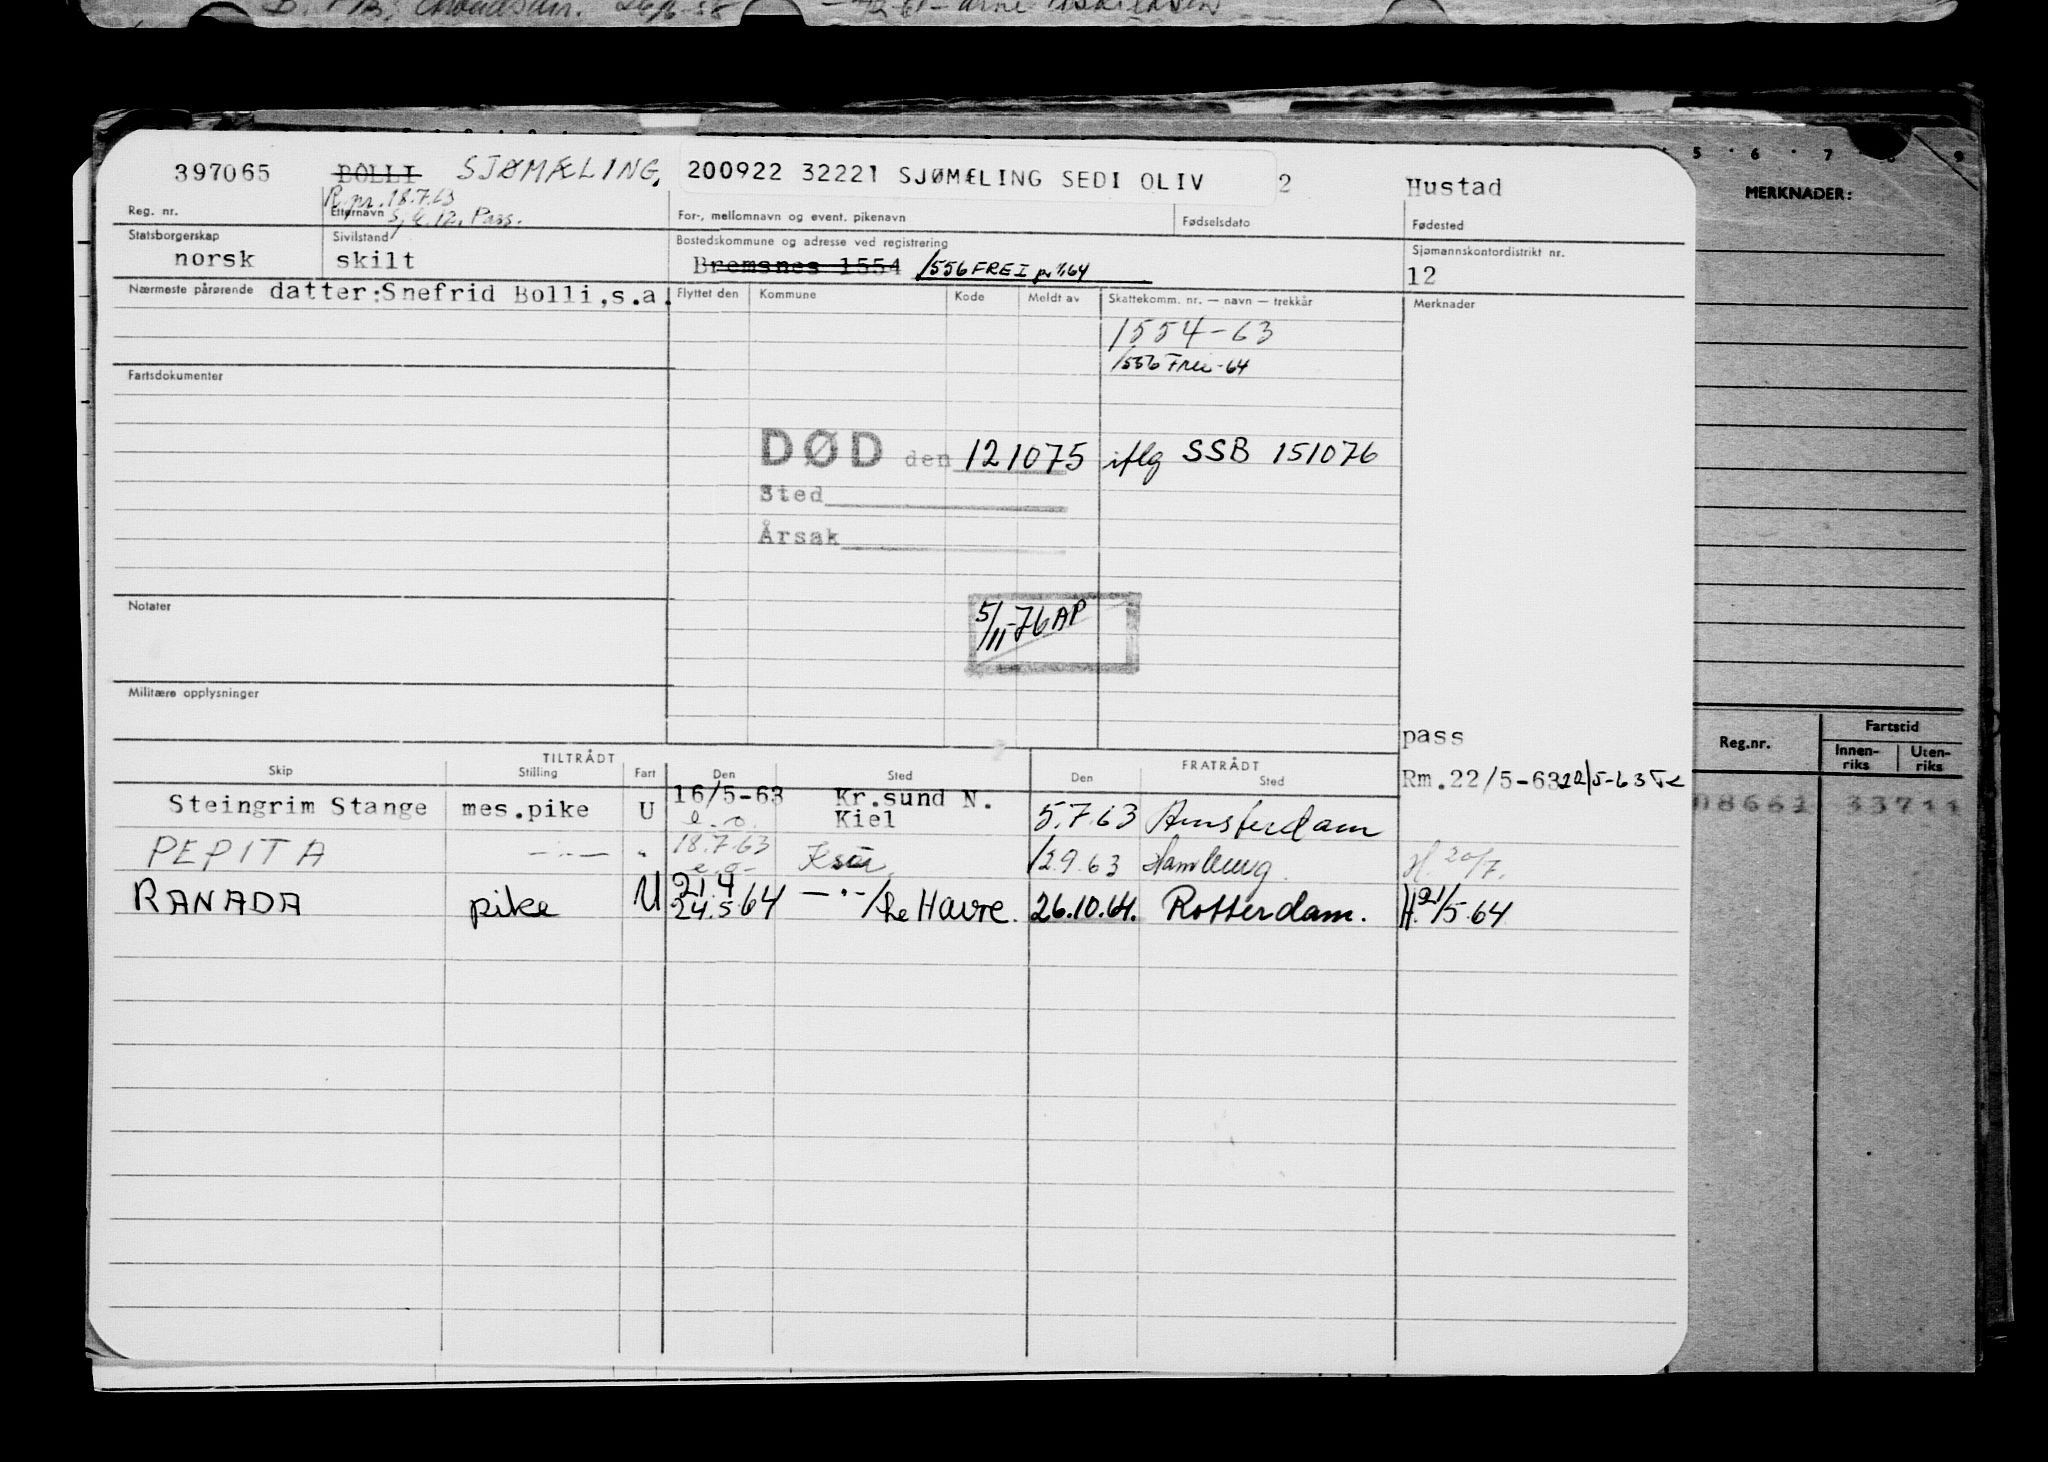 397065 BOLLI SJØMÆLING, 200922 32221 SJØMÆLING SEDI OLIV 2 Hustad
R. pr. 18.7.63
Reg. nr. Etternavn S, k. 12. Pass. For-, mellomnavn og event. pikenavn Fødselsdato Fødested
Statsborgerskap Sivilstand Bostedskommune og adresse ved registrering Sjømannskontordistrikt nr.
norsk skilt Bremsnes 1554 1556 FREI pr 1/1 64 12
Nærmeste pårørende datter: Snefrid Bolli, s.a. Flyttet den Kommune Kode Meldt av Skattekomm. nr. — navn — trekkår Merknader
1554-63
1556 Frei-64
Fartsdokumenter
DØD den 121075 iflg SSB 151076
Sted
Årsak
Notater
5/11-76 AP
Militære opplysninger
pass
TILTRÅDT FRATRÅDT
Skip Stilling Fart Den Sted Den Sted
Rm. 22/5-63 22/5-63
Steingrim Stange mes.pike U 16/5-63 Kr.sund N. Kiel 5.7.63 Amsterdam
PEPITA —"— " 18.7.63 Ksu 12.9.63 Hamburg. H. 20/7.
RANADA pike U 21.4 24.5.64 —"— /Le Havre. 26.10.64. Rotterdam. H. 21/5.64
5 6 7 8 9
MERKNADER:
Reg.nr. Fartstid
Innen- riks Uten- riks
33711